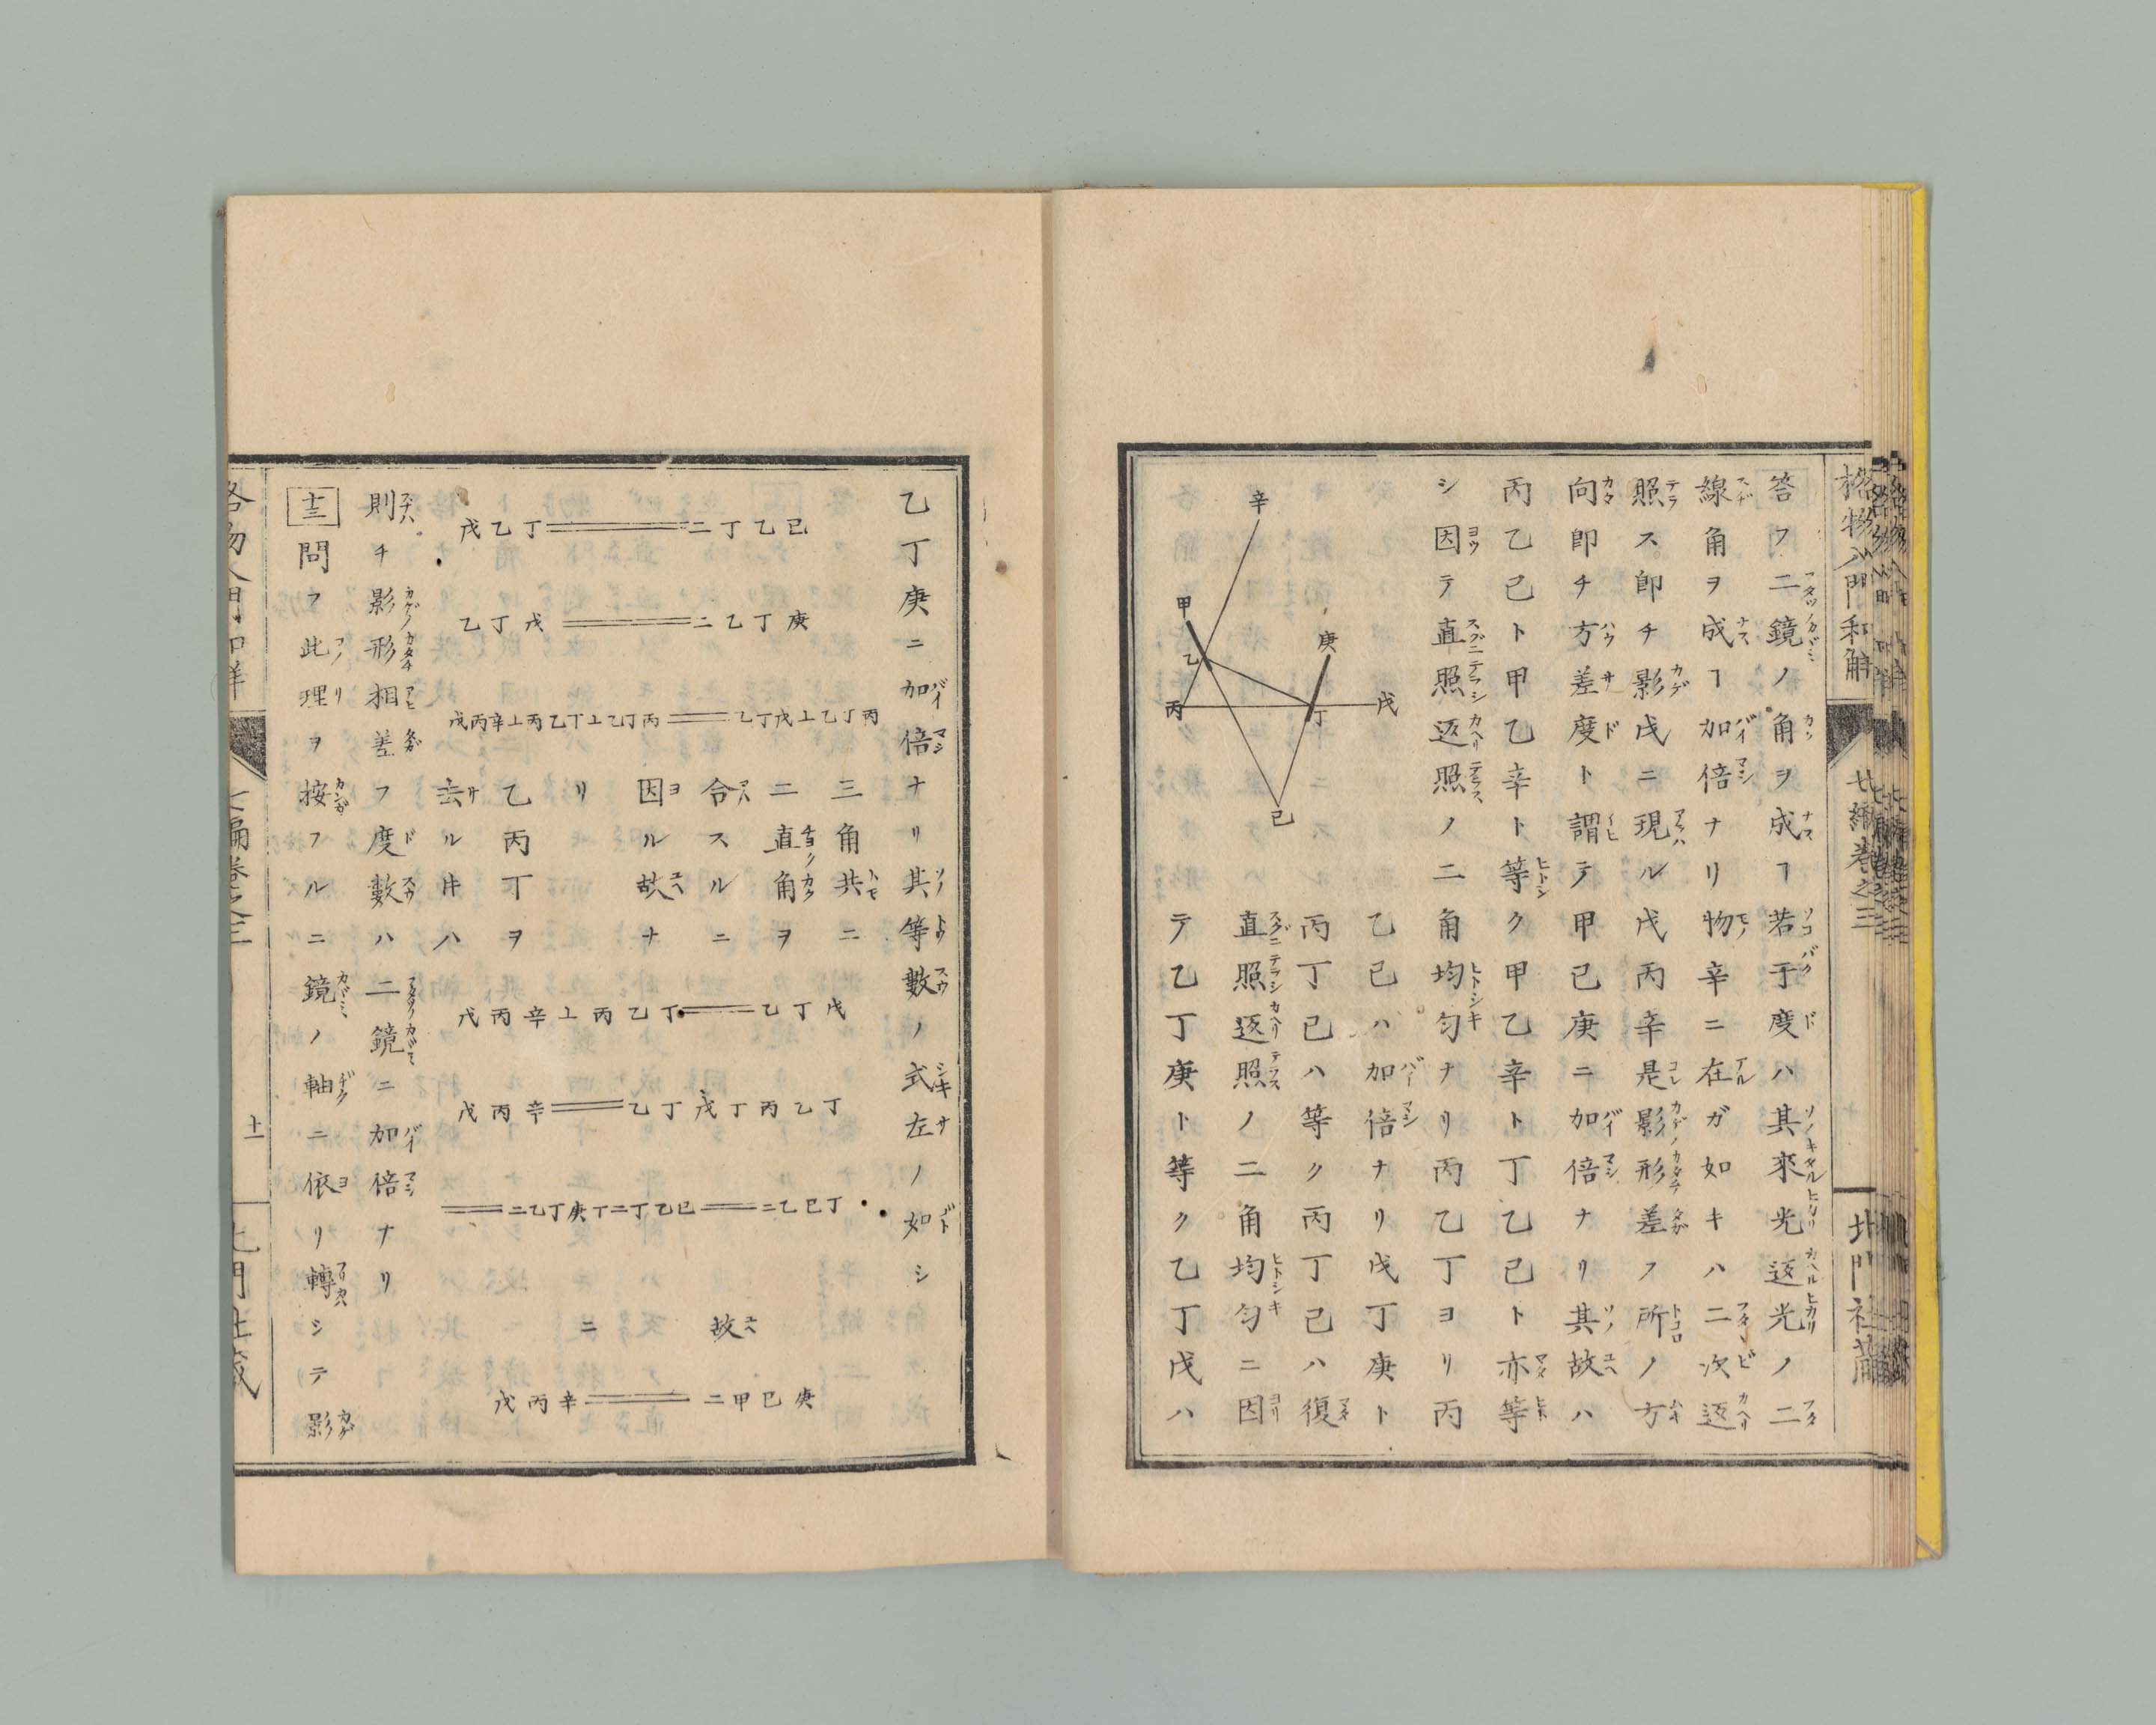 格物入門和解
七編巻之三
北門社蔵
答フ二鏡ノ角ヲ成スヿ若干度ハ其來光返光ノ二
線角ヲ成スヿ加倍ナリ物辛ニ在ルガ如キハ二次返
照ス即チ影戊ニ現ル戊丙辛是影形差フ所ノ方
向即チ方差度ト謂テ甲己庚ニ加倍ナリ其故ハ
丙乙己ト甲乙辛ト等ク甲乙辛ト丁乙己ト亦等
シ因テ直照返照ノ二角均匀ナリ丙乙丁ヨリ丙
乙己ハ加倍ナリ戊丁庚ト
丙丁己ハ等ク丙丁己ハ復
直照返照ノ二角均匀ニ因
テ乙丁庚ト等ク乙丁戊ハ
辛
甲
乙
丙
庚
丁
戊
己
乙丁庚ニ加倍ナリ其等數ノ式左ノ如シ
戊乙丁══二丁乙己
乙丁戊══二乙丁庚
戊丙辛丄丙乙丁丄乙丁丙══乙丁戊丄乙丁丙
三角共ニ
二直角ヲ
合スルニ
因ル故ナ
リ
乙丙丁ヲ
去ル𪜈ハ
戊丙辛丄丙乙丁══乙丁戊
戊丙辛══乙丁戊丁丙乙丁
══二乙丁庚丁二丁乙己══二乙己丁
故
ニ
戊丙辛══二甲己庚
則チ影形相差フ度數ハ二鏡ニ加倍ナリ
十三 問フ此理ヲ按フルニ鏡ノ軸ニ依リ轉シテ影
十一